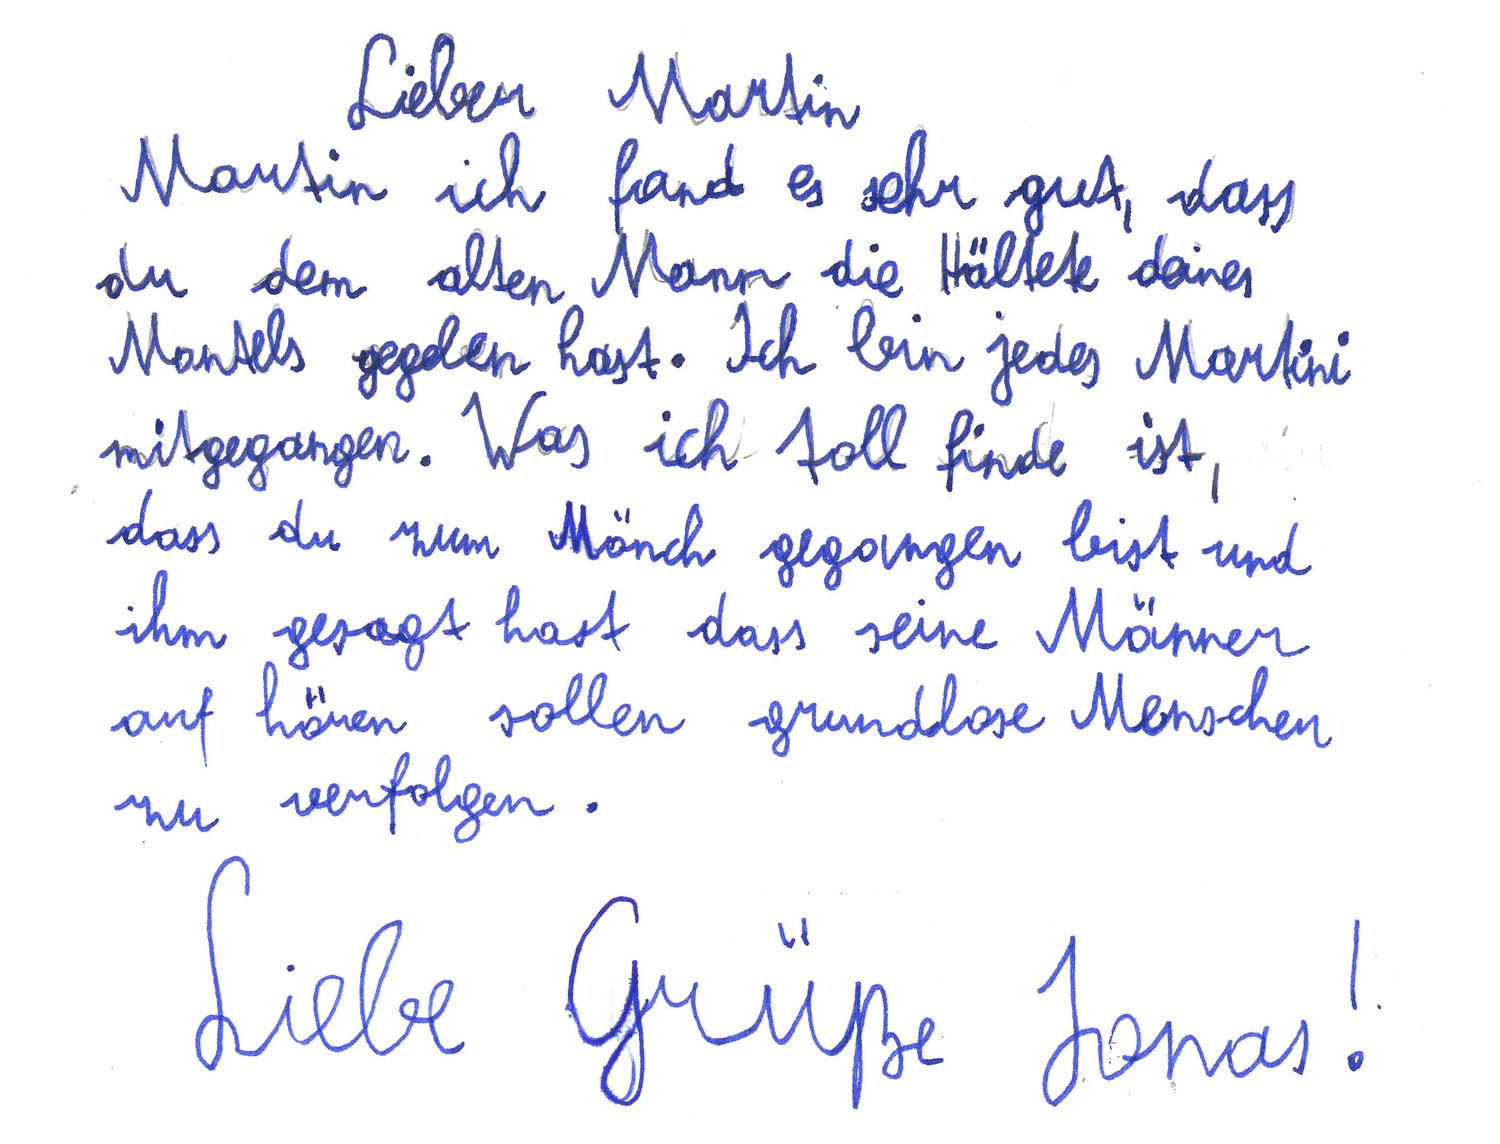 Lieber Martin
Martin ich fand es sehr gut, dass
du dem alten Mann die Hältete deines
Mantels gegeben hast. Ich bin jedes Martini
mitgegangen. Was ich toll finde ist,
dass du zum Mönch gegangen bist und
ihm gesagt hast dass seine Männer
auf hören sollen grundlose Menschen
zu verfolgen.
Liebe Grüße Jonas!